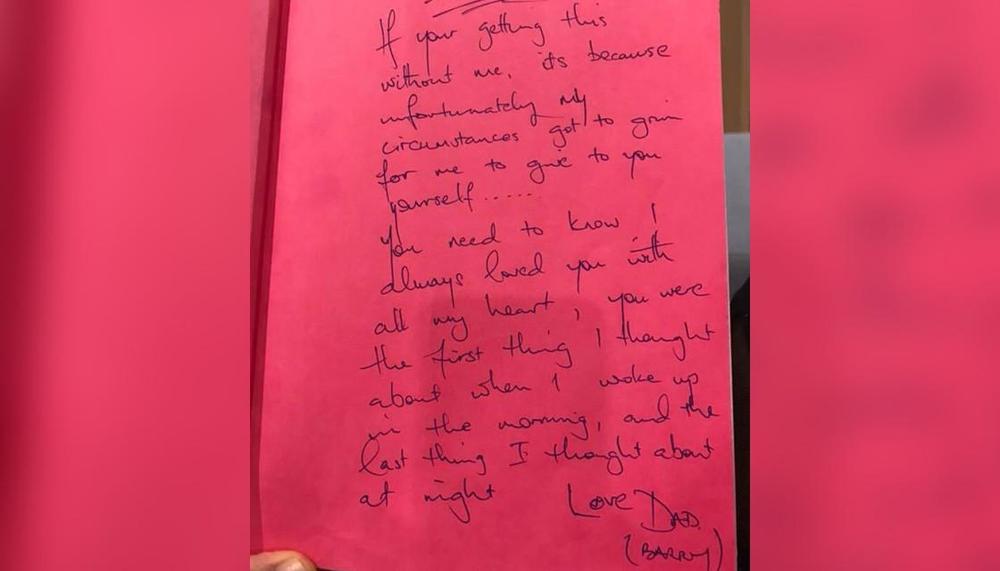 If your getting this
without me, its because
unfortunately my
circumstances got to grim
for me to give to you
yourself......
You need to know I
always loved you with
all my heart, you were
the first thing I thought
about when I woke up
in the morning, and the
last thing I thought about
at night
Love DAD.
(BARRY)